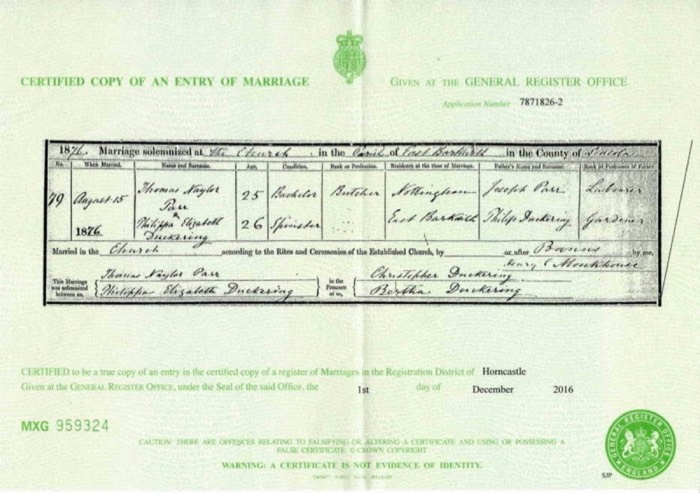 CERTIFIED COPY OF AN ENTRY OF MARRIAGE
GIVEN AT THE GENERAL REGISTER OFFICE
Application Number 7871826-2
1876. Marriage solemnized at the Church in the Parish of East Barkwith in the County of Lincoln
No. When Married. Name and Surname. Age. Condition. Rank or Profession. Residence at the time of Marriage. Father's Name and Surname. Rank or Profession of Father
79 August 15 1876.
Thomas Naylor Parr 25 Bachelor Butcher Nottingham Joseph Parr Labourer
& Philippa Elizabeth Duckering 26 Spinster East Barkwith Philip Duckering Gardener
Married in the Church according to the Rites and Ceremonies of the Established Church, by or after Banns by me,
Henry C Monkhouse
This Marriage was solemnized between us, Thomas Naylor Parr Philippa Elizabeth Duckering
in the Presence of us, Christopher Duckering Bertha Duckering
CERTIFIED to be a true copy of an entry in the certified copy of a register of Marriages in the Registration District of Horncastle
Given at the GENERAL REGISTER OFFICE, under the Seal of the said Office, the 1st day of December 2016
MXG 959324
CAUTION: THERE ARE OFFENCES RELATING TO FALSIFYING OR ALTERING A CERTIFICATE AND USING OR POSSESSING A
FALSE CERTIFICATE © CROWN COPYRIGHT
WARNING: A CERTIFICATE IS NOT EVIDENCE OF IDENTITY.
GENERAL REGISTER OFFICE
ENGLAND
SJP